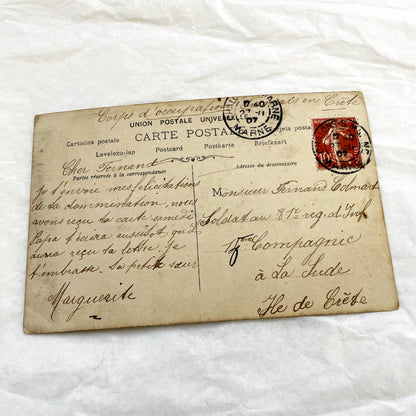 Corps d'occupation en Crète
UNION POSTALE UNIVER
MARNE
07
Cartolina postale
CARTE POSTAL
jeta postale
Levelezo-lap Postcard Postkarte Briefkaart
Cher Fernand
Partie réservée à la correspondance
Adresse du destinataire
je t'envoie mes félicitations
de ta nommination, nous
avons reçu ta carte samedi
Papa t'écrira aussitôt qu'il
aura reçu ta lettre. Je
t'embrasse. Ta petite sœur
Marguerite
Monsieur Fernand
Soldat au 81e rég. d'Inf
Compagnie
à La Sude
Ile de Crète